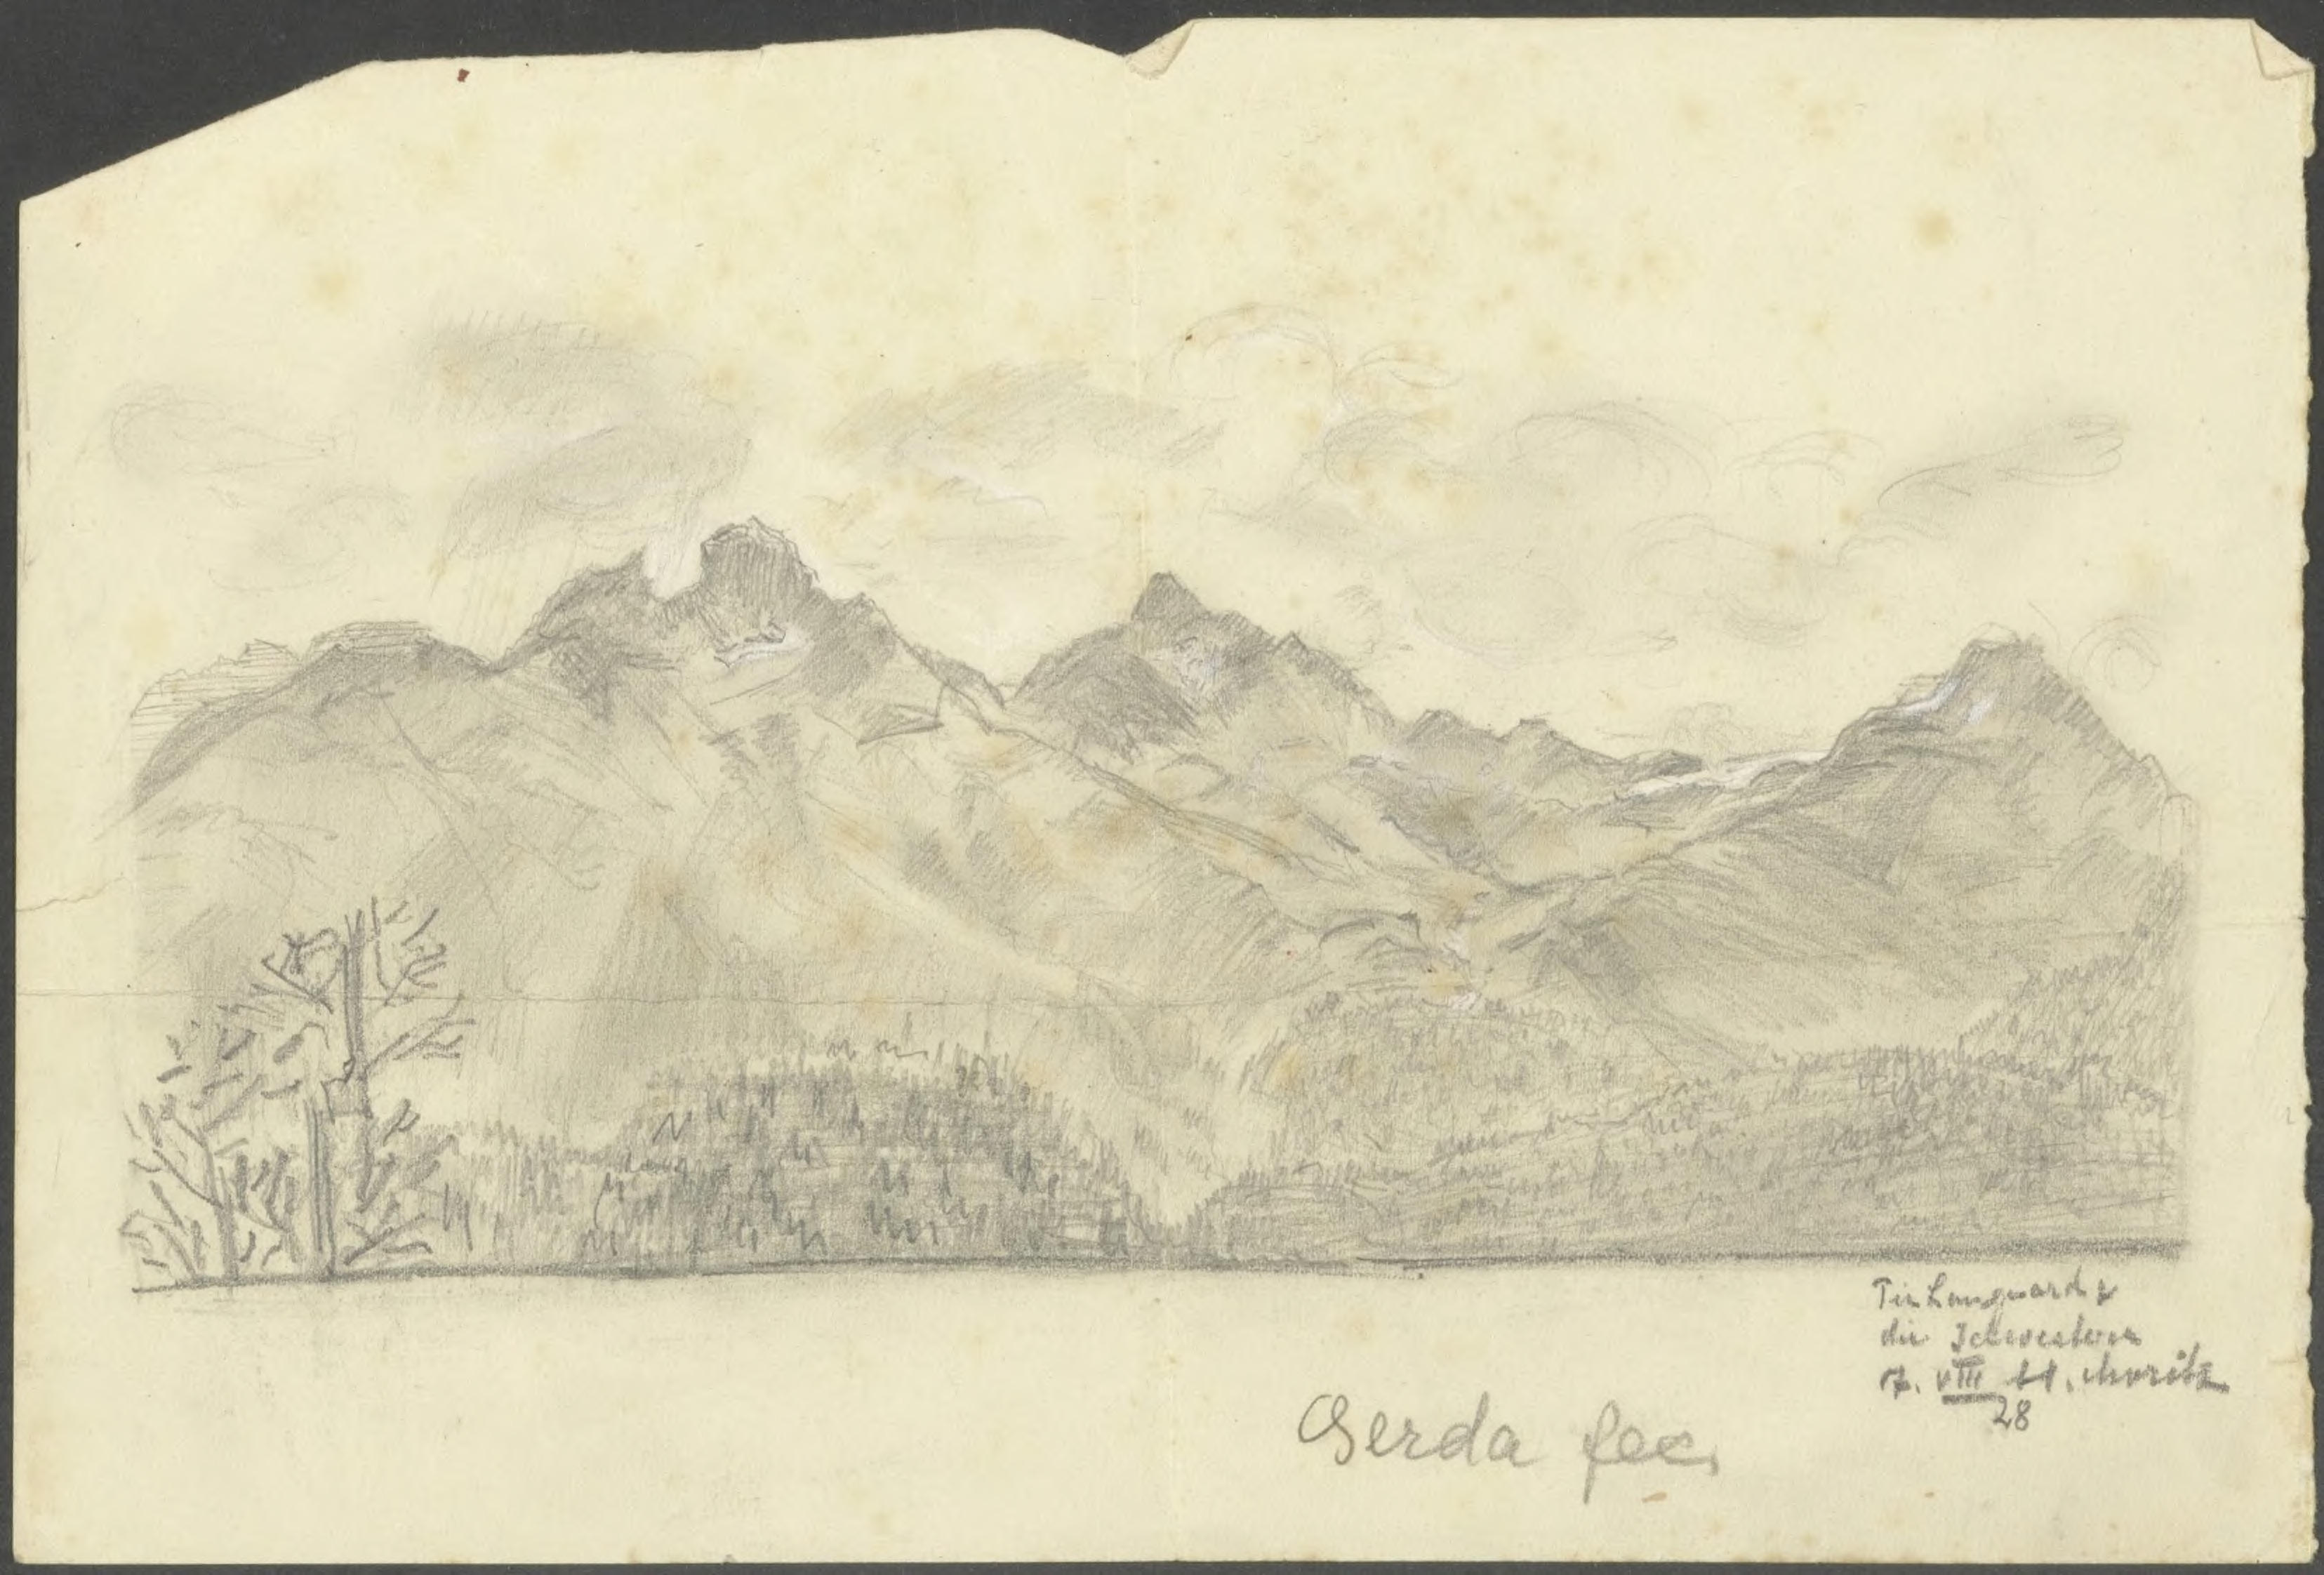 Piz Languard &
die Schwestern
17. VIII St. Moritz
28
Gerda fec.